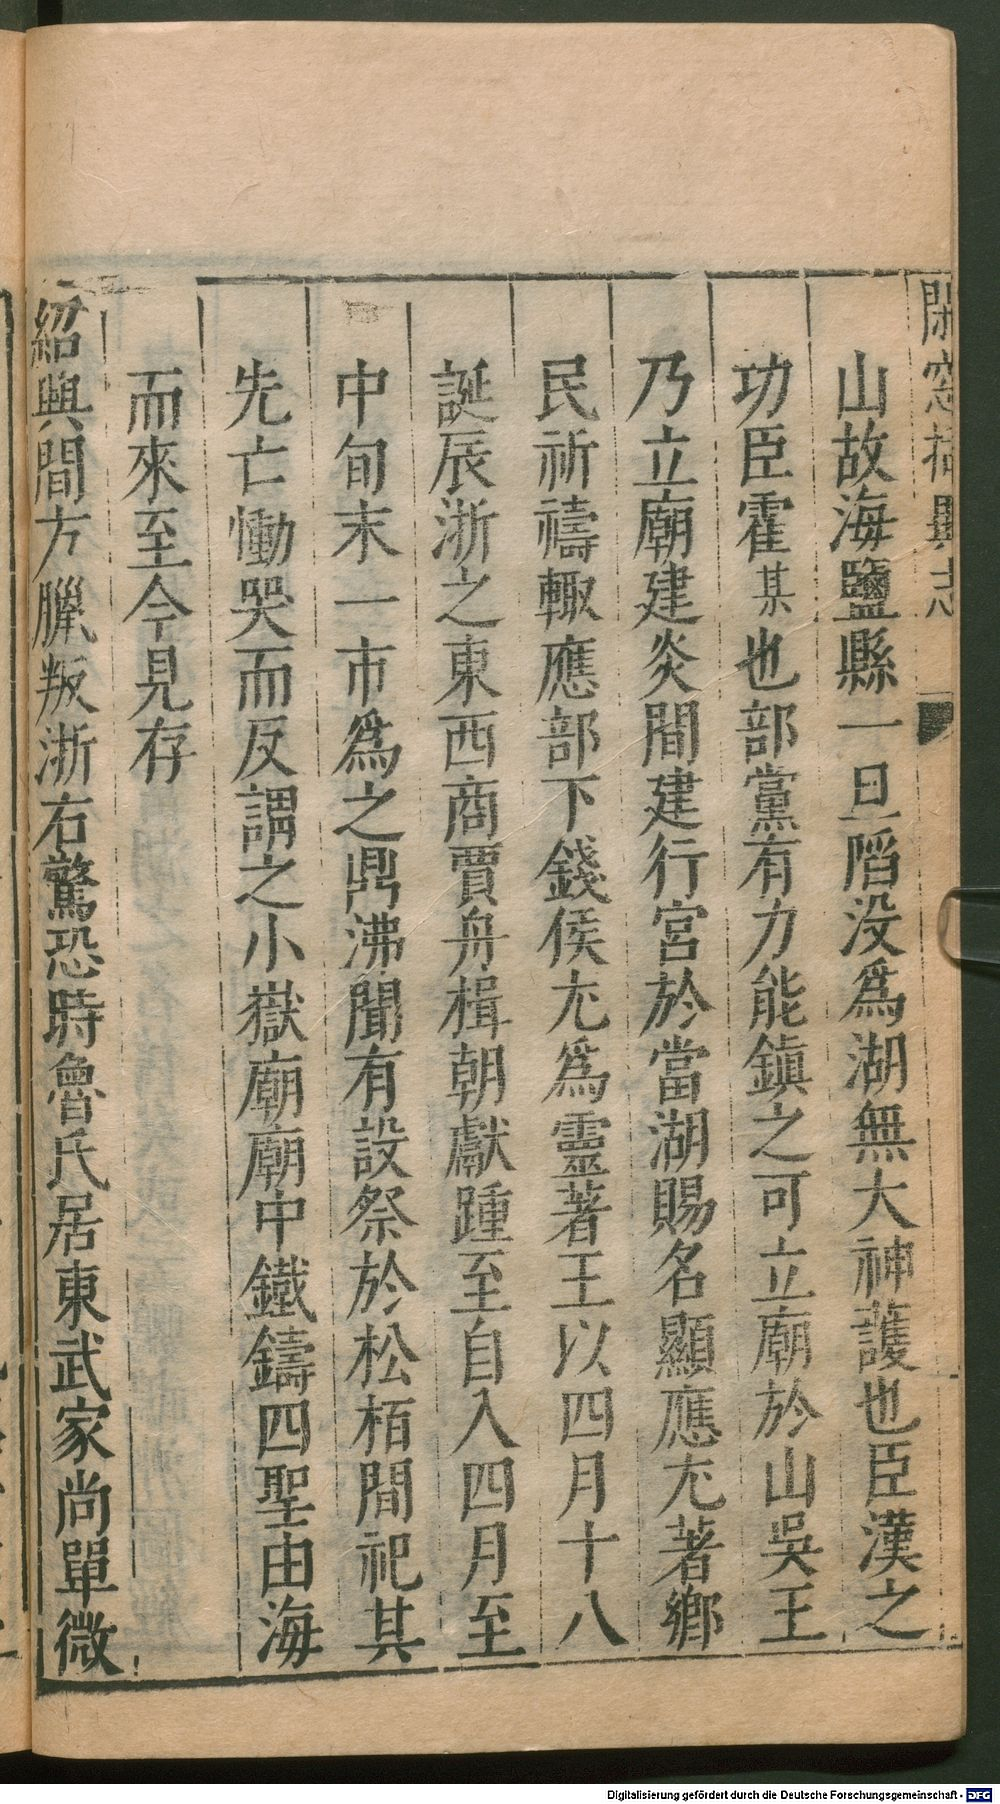 閒窓括異志
山故海鹽縣一旦陷没爲湖無大神護也臣漢之
功臣霍某也部黨有力能鎭之可立廟於山吳王
乃立廟建炎間建行宮於當湖賜名顯應尤著鄉
民祈禱輙應部下錢侯尤爲靈著王以四月十八
誕辰浙之東西商賈舟楫朝獻踵至自入四月至
中旬末一市爲之鼎沸聞有設祭於松栢間祀其
先亡慟哭而反謂之小嶽廟廟中鐵鑄四聖由海
而來至今見存
紹興間方臘叛浙右驚恐時魯氏居東武家尚單微
Digitalisierung gefördert durch die Deutsche Forschungsgemeinschaft - DFG